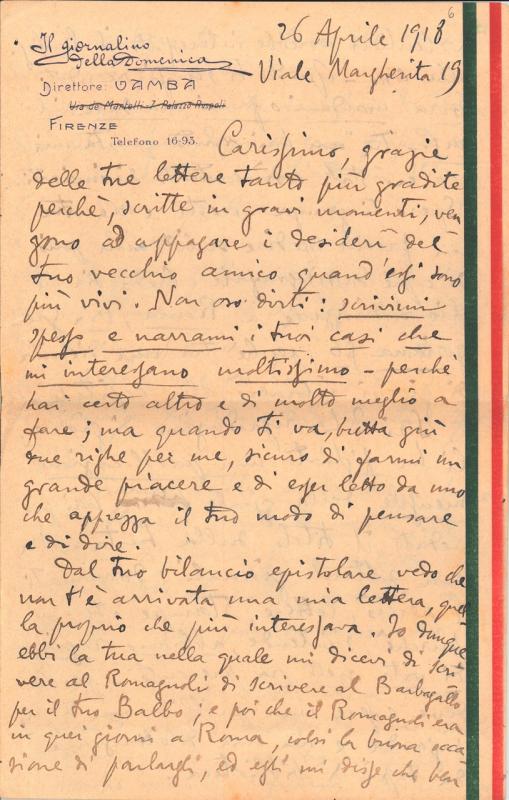 6
26 Aprile 1918
Viale Margherita 19
Il giornalino
della Domenica
Direttore: VAMBA
Via de' Martelli - 7 Palazzo Ruspoli
FIRENZE
Telefono 16-95.
Carissimo, grazie
delle tue lettere tanto più gradite
perchè, scritte in gravi momenti, ven
gono ad appagare i desideri del
tuo vecchio amico quand'essi sono
più vivi. Non oso dirti: scrivimi
spesso e narrami i tuoi casi che
mi interessano moltissimo - perchè
hai certo altro e di molto meglio a
fare; ma quando ti va, butta giù
due righe per me, sicuro di farmi un
grande piacere e di esser letto da uno
che apprezza il tuo modo di pensare
e di dire.
Dal tuo bilancio epistolare vedo che
non t'è arrivata una mia lettera, quel
la proprio che più interessava. Io dunque
ebbi la tua nella quale mi dicevi di scri
vere al Romagnoli di scrivere al Barbagallo
per il tuo Balbo; e poi che il Romagnoli era
in quei giorni a Roma, colsi la buona occa
sione di parlargli, ed egli mi disse che ben